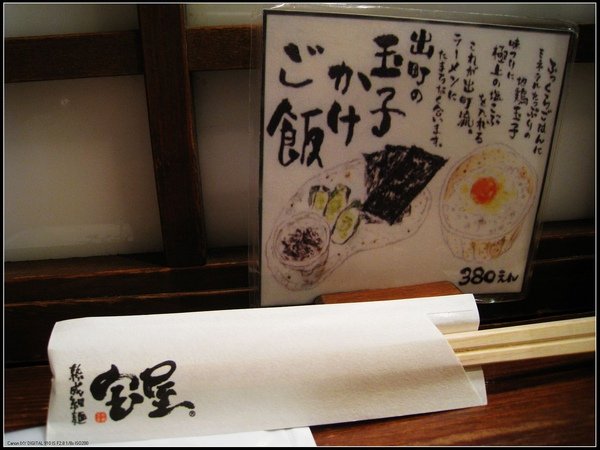 出町の
玉子
かけ
ご飯
ふっくらごはんに
ミネラルたっぷりの
地鶏玉子
味のりに
極上の塩こぶ
をいれる
これが出町流。
ラーメンに
たまらなく合います。
380えん
熟成細麺
宝屋
®
Canon IXY DIGITAL 910 IS F2.8 1/8s ISO200